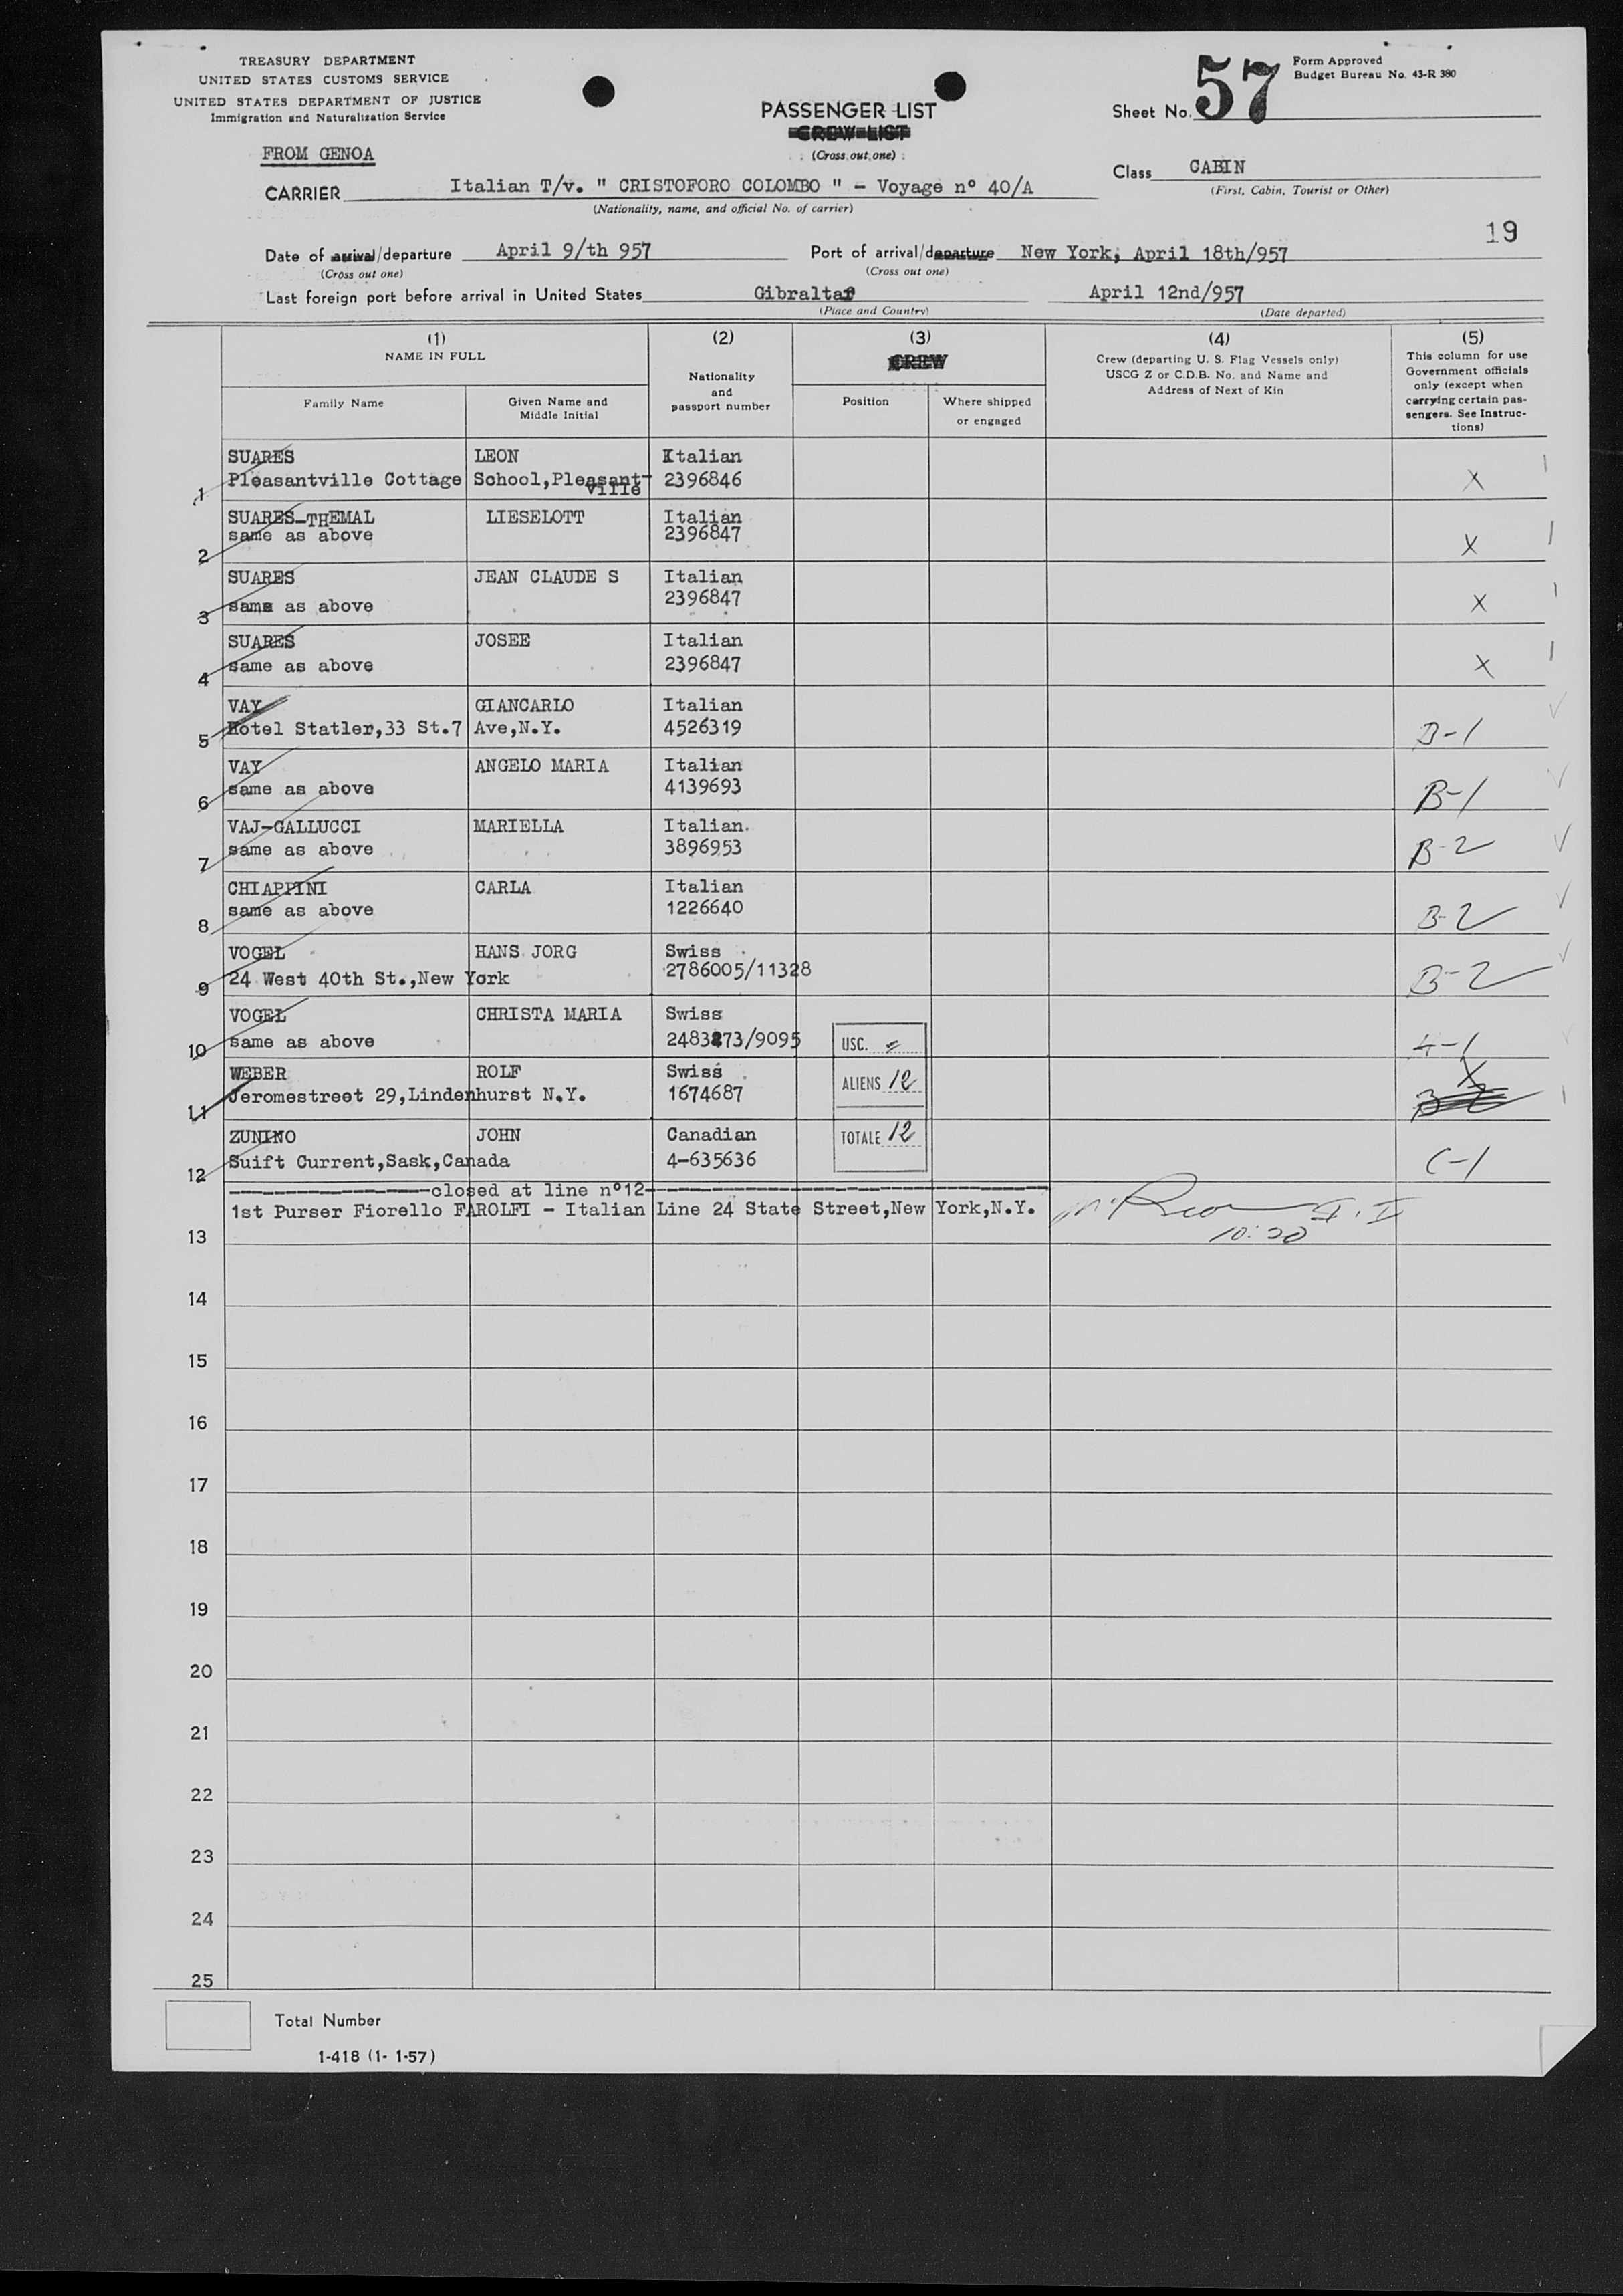 TREASURY DEPARTMENT
UNITED STATES CUSTOMS SERVICE
UNITED STATES DEPARTMENT OF JUSTICE
Immigration and Naturalization Service
PASSENGER LIST
CREW LIST
(Cross out one)
Sheet No. 57
Form Approved
Budget Bureau No. 43-R 380
FROM GENOA
CARRIER Italian T/v. " CRISTOFORO COLOMBO " - Voyage n° 40/A
(Nationality, name, and official No. of carrier)
Class CABIN
(First, Cabin, Tourist or Other)
19
Date of arrival/departure April 9/th 957
(Cross out one)
Port of arrival/departure New York, April 18th/957
(Cross out one)
Last foreign port before arrival in United States Gibraltar April 12nd/957
(Place and Country) (Date departed)
(1)
NAME IN FULL
Family Name
Given Name and
Middle Initial
(2)
Nationality
and
passport number
(3)
CREW
Position
Where shipped
or engaged
(4)
Crew (departing U. S. Flag Vessels only)
USCG Z or C.D.B. No. and Name and
Address of Next of Kin
(5)
This column for use
Government officials
only (except when
carrying certain pas-
sengers. See Instruc-
tions)
SUARES LEON Italian
1 Pleasantville Cottage School,Pleasant-ville 2396846 X
SUARES-THEMAL LIESELOTT Italian
2 same as above 2396847 X
SUARES JEAN CLAUDE S Italian
3 same as above 2396847 X
SUARES JOSEE Italian
4 same as above 2396847 X
VAY GIANCARLO Italian
5 Hotel Statler,33 St.7 Ave,N.Y. 4526319 B-1
VAY ANGELO MARIA Italian
6 same as above 4139693 B-1
VAJ-GALLUCCI MARIELLA Italian.
7 same as above 3896953 B-2
CHIAPPINI CARLA Italian
8 same as above 1226640 B-2
VOGEL HANS JORG Swiss
9 24 West 40th St.,New York 2786005/11328 B-2
VOGEL CHRISTA MARIA Swiss
10 same as above /9095 USC.
WEBER ROLF Swiss X
11 Jeromestreet 29,Lindenhurst N.Y. 1674687 ALIENS 12 B-2
ZUNINO JOHN Canadian TOTALE 12
12 Suift Current,Sask,Canada 4-635636 C-1
------------------closed at line n°12------------------------------------
1st Purser Fiorello FAROLFI - Italian Line 24 State Street,New York,N.Y.
10:20
13
14
15
16
17
18
19
20
21
22
23
24
25
Total Number
1-418 (1- 1-57)